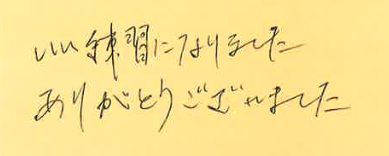 いい練習になりました
ありがとうございました